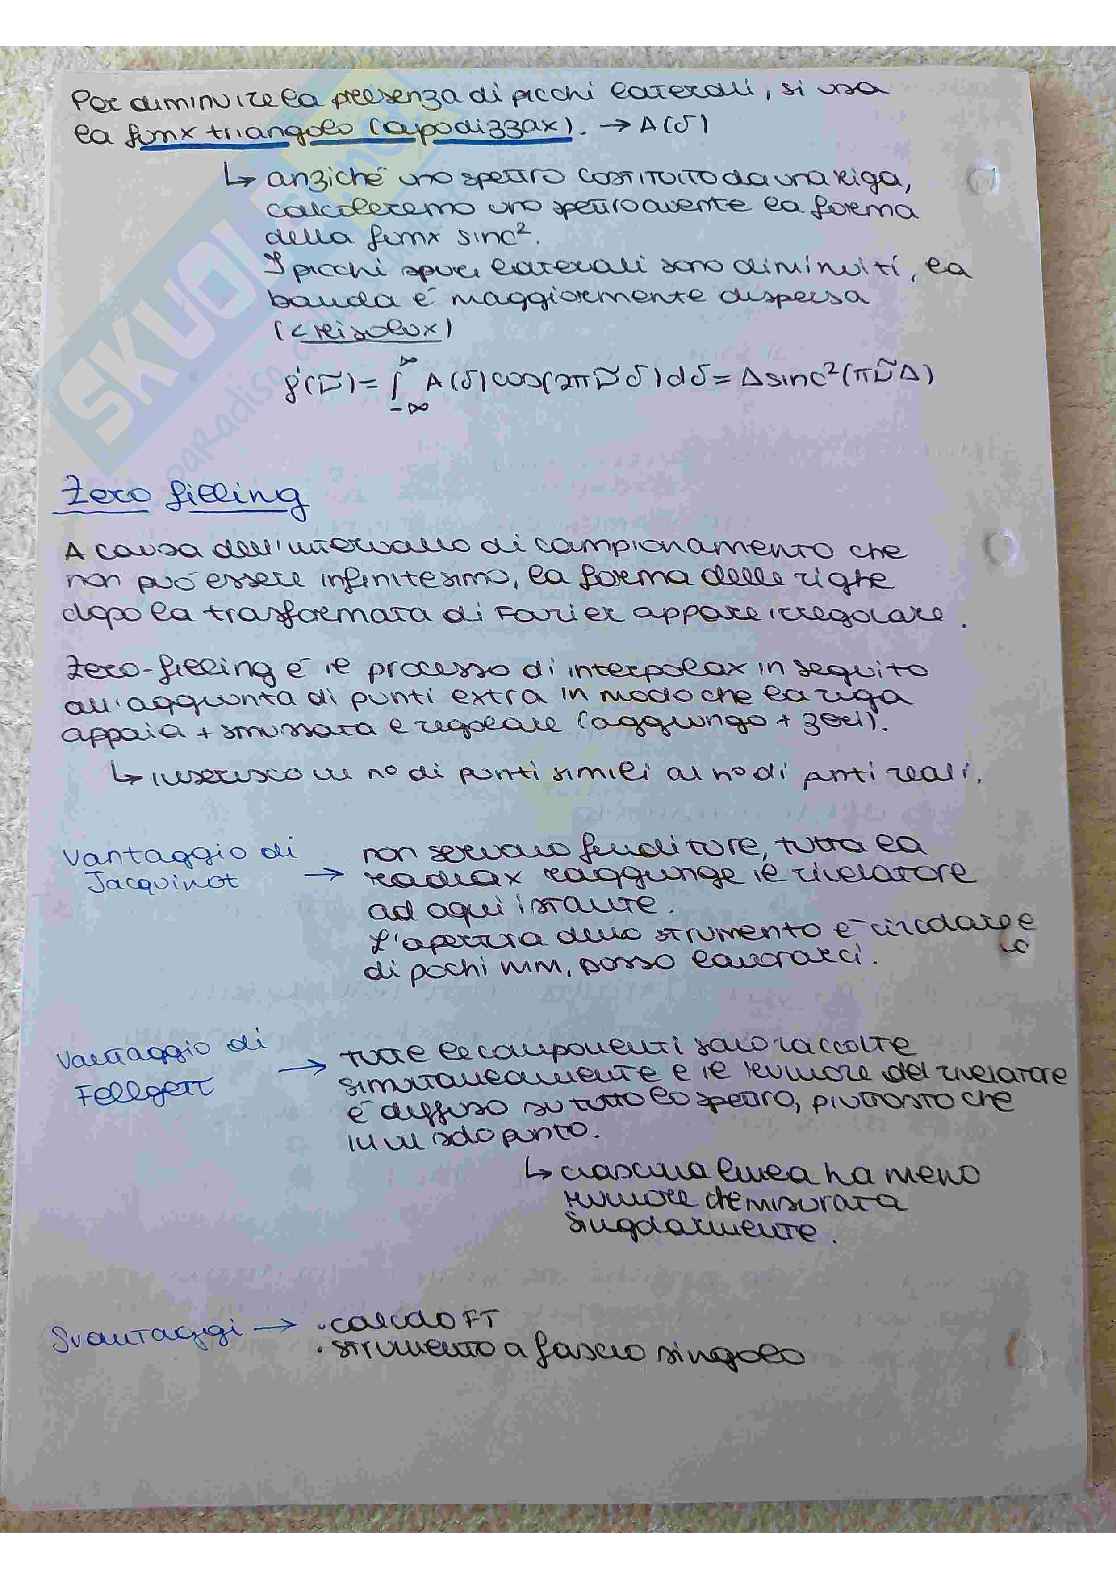 Per diminuire la presenza di picchi laterali, si usa
la funx triangolo (apodizzax). → A(δ)
↳ anziché uno spettro costituito da una riga,
calcoleremo uno spettro avente la forma
della funx sinc².
I picchi spuri laterali sono diminuiti, la
banda è maggiormente dispersa
(< risolux)
f(ν̃) = ∫_{-∞}^{∞} A(δ) cos(2πν̃δ) dδ = Δ sinc²(πν̃Δ)
Zero filling
A causa dell'intervallo di campionamento che
non può essere infinitesimo, la forma delle righe
dopo la trasformata di Fourier appare irregolare.
Zero-filling è il processo di interpolax in seguito
all'aggiunta di punti extra in modo che la riga
appaia + smussata e regolare (aggiungo + zeri).
↳ inserisco un n° di punti simili al n° di punti reali.
Vantaggio di
Jacquinot
→ non servono fenditure, tutta la
radiax raggiunge il rivelatore
ad ogni istante.
L'apertura dello strumento è circolare e
di pochi mm, posso lavorarci.
Vantaggio di
Fellgett
→ tutte le componenti sono raccolte
simultaneamente e il rumore del rivelatore
è diffuso su tutto lo spettro, piuttosto che
in un solo punto.
↳ ciascuna linea ha meno
rumore che misurata
singolarmente.
Svantaggi → • calcolo FT
• strumento a fascio singolo